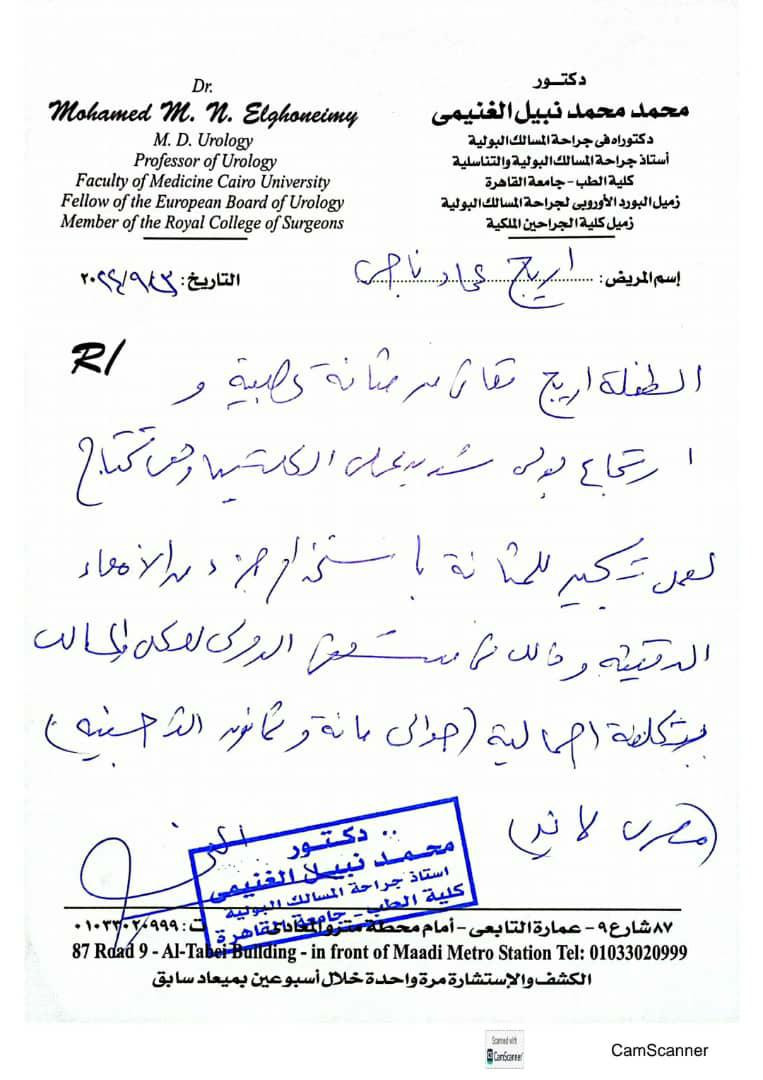 Dr.
Mohamed M. N. Elghoneimy
M. D. Urology
Professor of Urology
Faculty of Medicine Cairo University
Fellow of the European Board of Urology
Member of the Royal College of Surgeons
دكتــور
محمد محمد نبيل الغنيمى
دكتوراه فى جراحة المسالك البولية
أستاذ جراحة المسالك البولية والتناسلية
كلية الطب - جامعة القاهرة
زميل البورد الأوروبى لجراحة المسالك البولية
زميل كلية الجراحين الملكية
إسم المريض: اريج عماد ناجى
التاريخ: ٢٠٢٤/٩/٢٣
R/
الطفلة اريج تعانى من مثانة عصبية و
ارتجاع بولى شديد على الكليتين وهى تحتاج
لعمل تكبير للمثانة باستخدام جزء من الأمعاء
الدقيقة وذلك فى مستشفى الدولى للكلى والمسالك
بتكلفة اجمالية (حوالى مائة وثمانون الف جنيه)
(مصرى لا غير)
دكتــور
محمد نبيل الغنيمى
استاذ جراحة المسالك البولية
كلية الطب - جامعة القاهرة
٨٧ شارع ٩ - عمارة التابعى - أمام محطة مترو المعادى ت: ٠١٠٣٣٠٢٠٩٩٩
87 Road 9 - Al-Tabei Building - in front of Maadi Metro Station Tel: 01033020999
الكشف والإستشارة مرة واحدة خلال أسبوعين بميعاد سابق
Scanned with
CamScanner
CamScanner